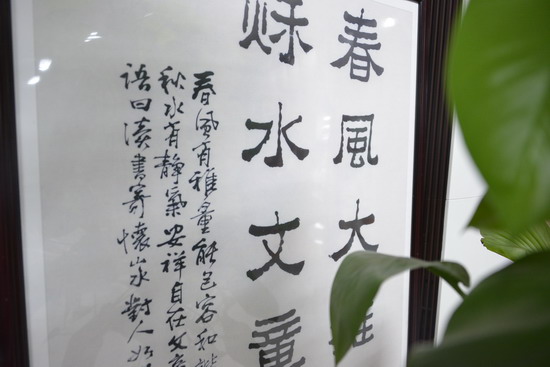 春風大雅
秌水文章
春風有雅量能包容和
秋水有靜氣安祥自在文
語曰读書寄懷山水對人